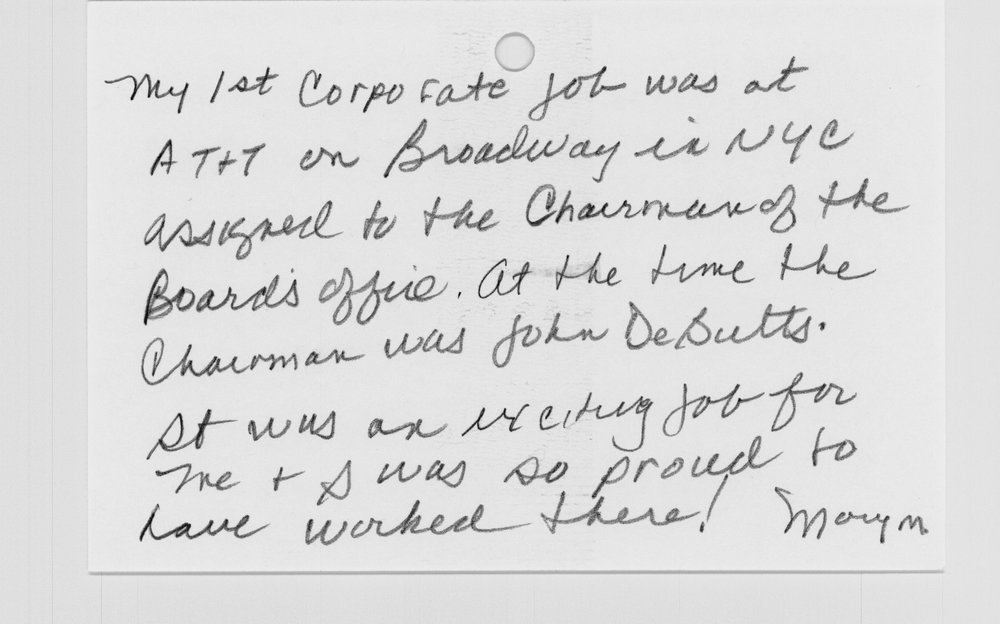 My 1st Corporate job was at
AT+T on Broadway in NYC
assigned to the Chairman of the
Board's office. At the time the
Chairman was John DeButts.
It was an exciting job for
me + I was so proud to
have worked there! Mary M